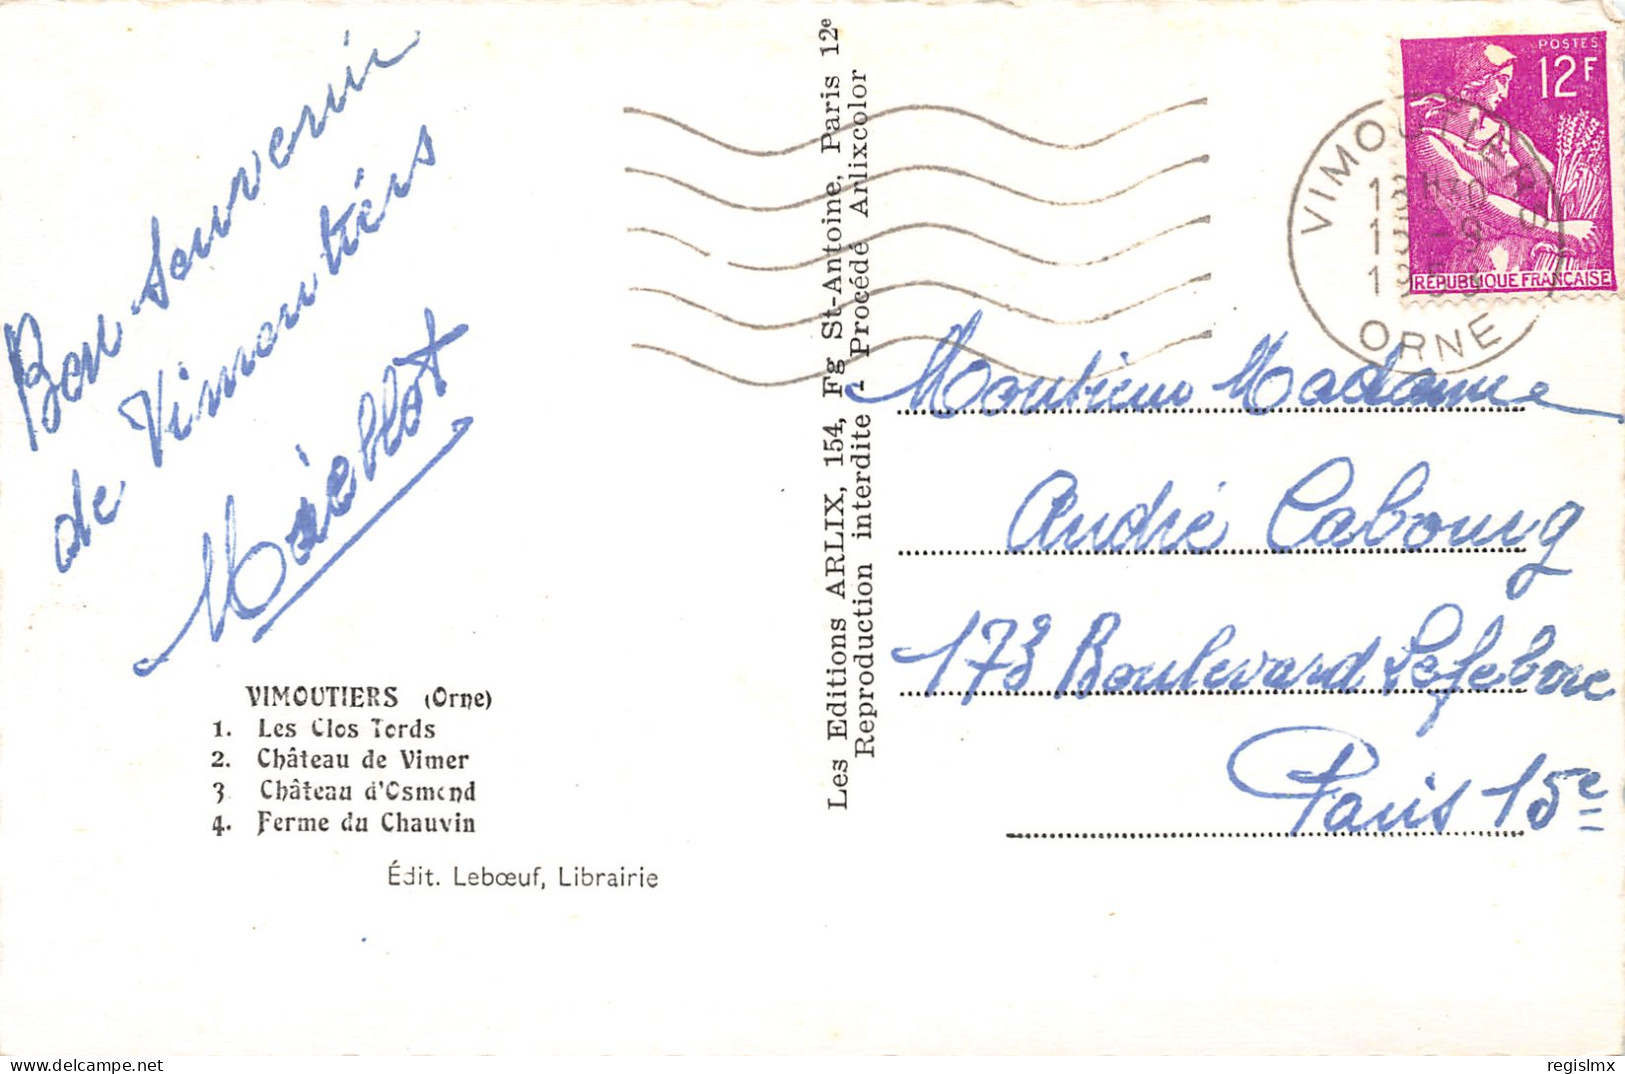 Bon Souvenir
de Vimoutiers
VIMOUTIERS (Orne)
1. Les Clos Tords
2. Château de Vimer
3 Château d'Osmond
4. Ferme du Chauvin
Édit. Lebœuf, Librairie
Les Editions ARLIX, 154, Fg St-Antoine, Paris 12e
Reproduction interdite - Procédé Arlixcolor
POSTES
12F
REPUBLIQUE FRANÇAISE
VIMOUTIERS
ORNE
Monsieur Madame
André Cabourg
173 Boulevard Lefebvre
Paris 15e
delcampe.net
regislmx